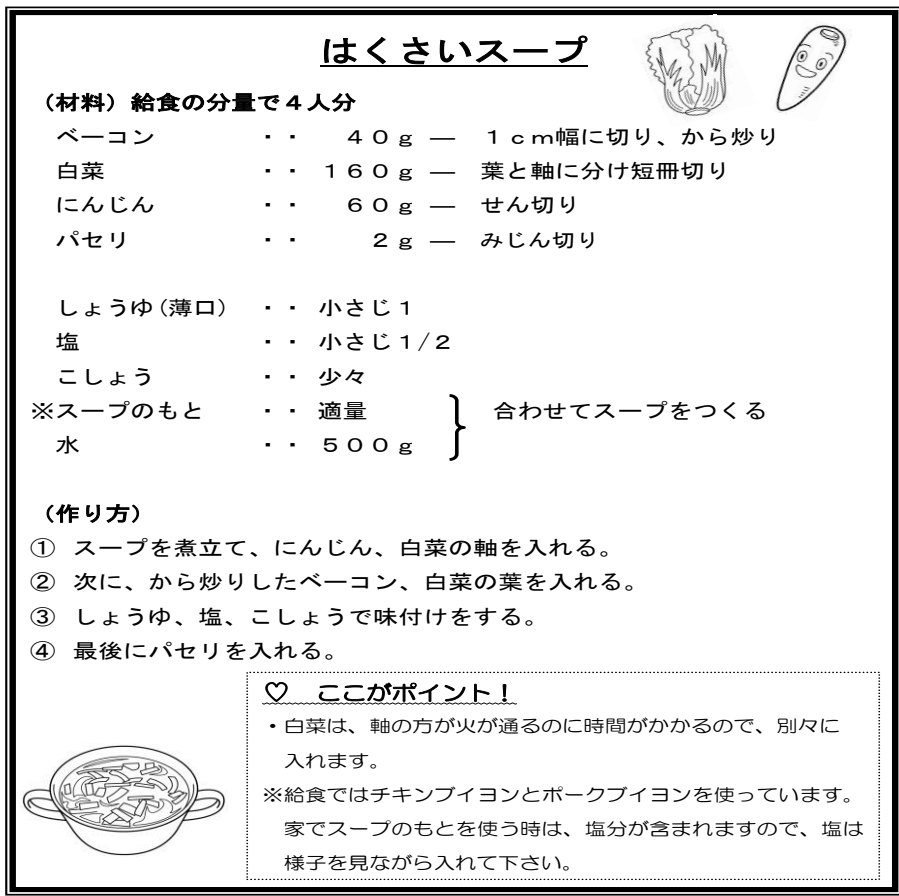 はくさいスープ
（材料）給食の分量で４人分
ベーコン ・・ ４０ｇ ― １ｃｍ幅に切り、から炒り
白菜 ・・ １６０ｇ ― 葉と軸に分け短冊切り
にんじん ・・ ６０ｇ ― せん切り
パセリ ・・ ２ｇ ― みじん切り
しょうゆ(薄口) ・・ 小さじ１
塩 ・・ 小さじ１/２
こしょう ・・ 少々
※スープのもと ・・ 適量 合わせてスープをつくる
水 ・・ ５００ｇ
（作り方）
① スープを煮立て、にんじん、白菜の軸を入れる。
② 次に、から炒りしたベーコン、白菜の葉を入れる。
③ しょうゆ、塩、こしょうで味付けをする。
④ 最後にパセリを入れる。
♡ ここがポイント！
・白菜は、軸の方が火が通るのに時間がかかるので、別々に
入れます。
※給食ではチキンブイヨンとポークブイヨンを使っています。
家でスープのもとを使う時は、塩分が含まれますので、塩は
様子を見ながら入れて下さい。